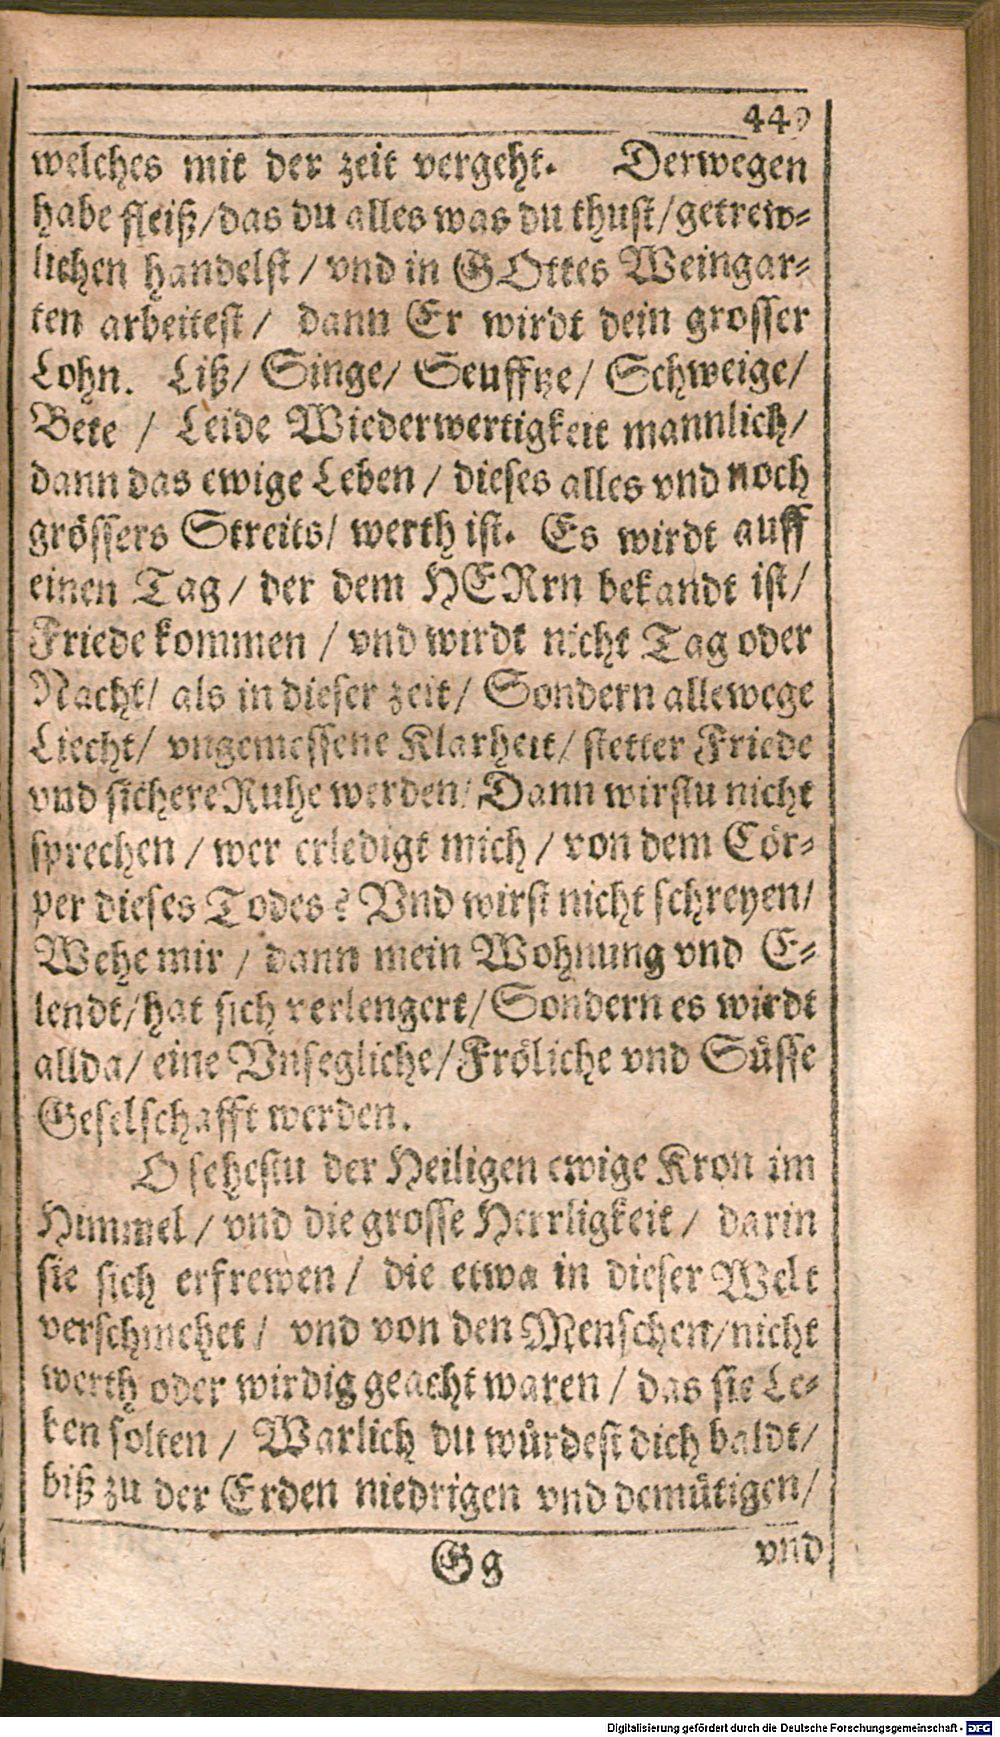 449
welches mit der zeit vergeht. Derwegen
habe fleiß/das du alles was du thust/getrew-
lichen handelst / vnd in GOttes Weingar-
ten arbeitest / dann Er wirdt dein grosser
Lohn. Liß/ Singe/ Seufftze/ Schweige/
Bete / Leide Wiederwertigkeit mannlich/
dann das ewige Leben / dieses alles vnd noch
grössers Streits/ werth ist. Es wirdt auff
einen Tag / der dem HERrn bekandt ist/
Friede kommen / vnd wirdt nicht Tag oder
Nacht/ als in dieser zeit/ Sondern allewege
Liecht/ vngemessene Klarheit/ stetter Friede
vnd sichere Ruhe werden/ Dann wirstu nicht
sprechen / wer erledigt mich / von dem Cör-
per dieses Todes? Vnd wirst nicht schreyen/
Wehe mir / dann mein Wohnung vnd E-
lendt/hat sich verlengert/Sondern es wirdt
allda/ eine Vnsegliche/Fröliche vnd Süsse
Geselschafft werden.
O sehestu der Heiligen ewige Kron im
Himmel / vnd die grosse Herrligkeit / darin
sie sich erfrewen / die etwa in dieser Welt
verschmehet / vnd von den Menschen/nicht
werth oder wirdig geacht waren / das sie Le-
ben solten / Warlich du würdest dich baldt/
biß zu der Erden niedrigen vnd demütigen/
Gg vnd
Digitalisierung gefördert durch die Deutsche Forschungsgemeinschaft - DFG